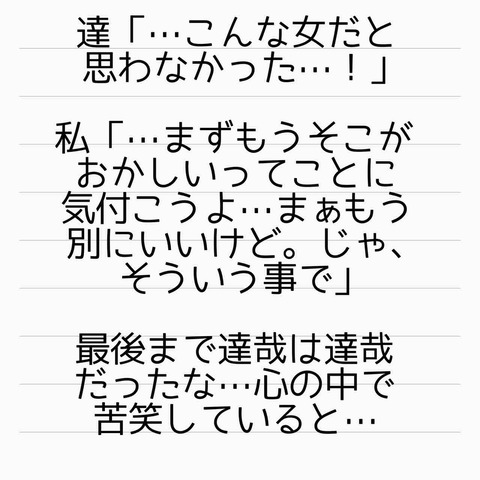 達「…こんな女だと
思わなかった…！」
私「…まずもうそこが
おかしいってことに
気付こうよ…まぁもう
別にいいけど。じゃ、
そういう事で」
最後まで達哉は達哉
だったな…心の中で
苦笑していると…